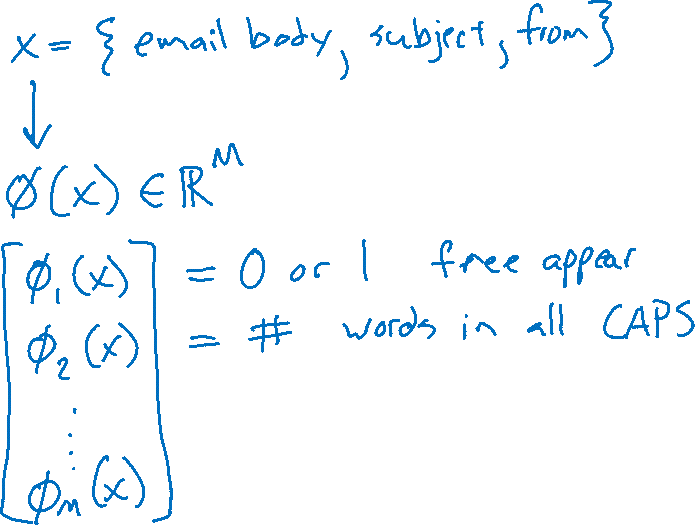 x = { email body, subject, from }
↓
φ(x) ∈ ℝ^M
φ₁(x) = 0 or 1 free appear
φ₂(x) = # words in all CAPS
⋮
φₘ(x)